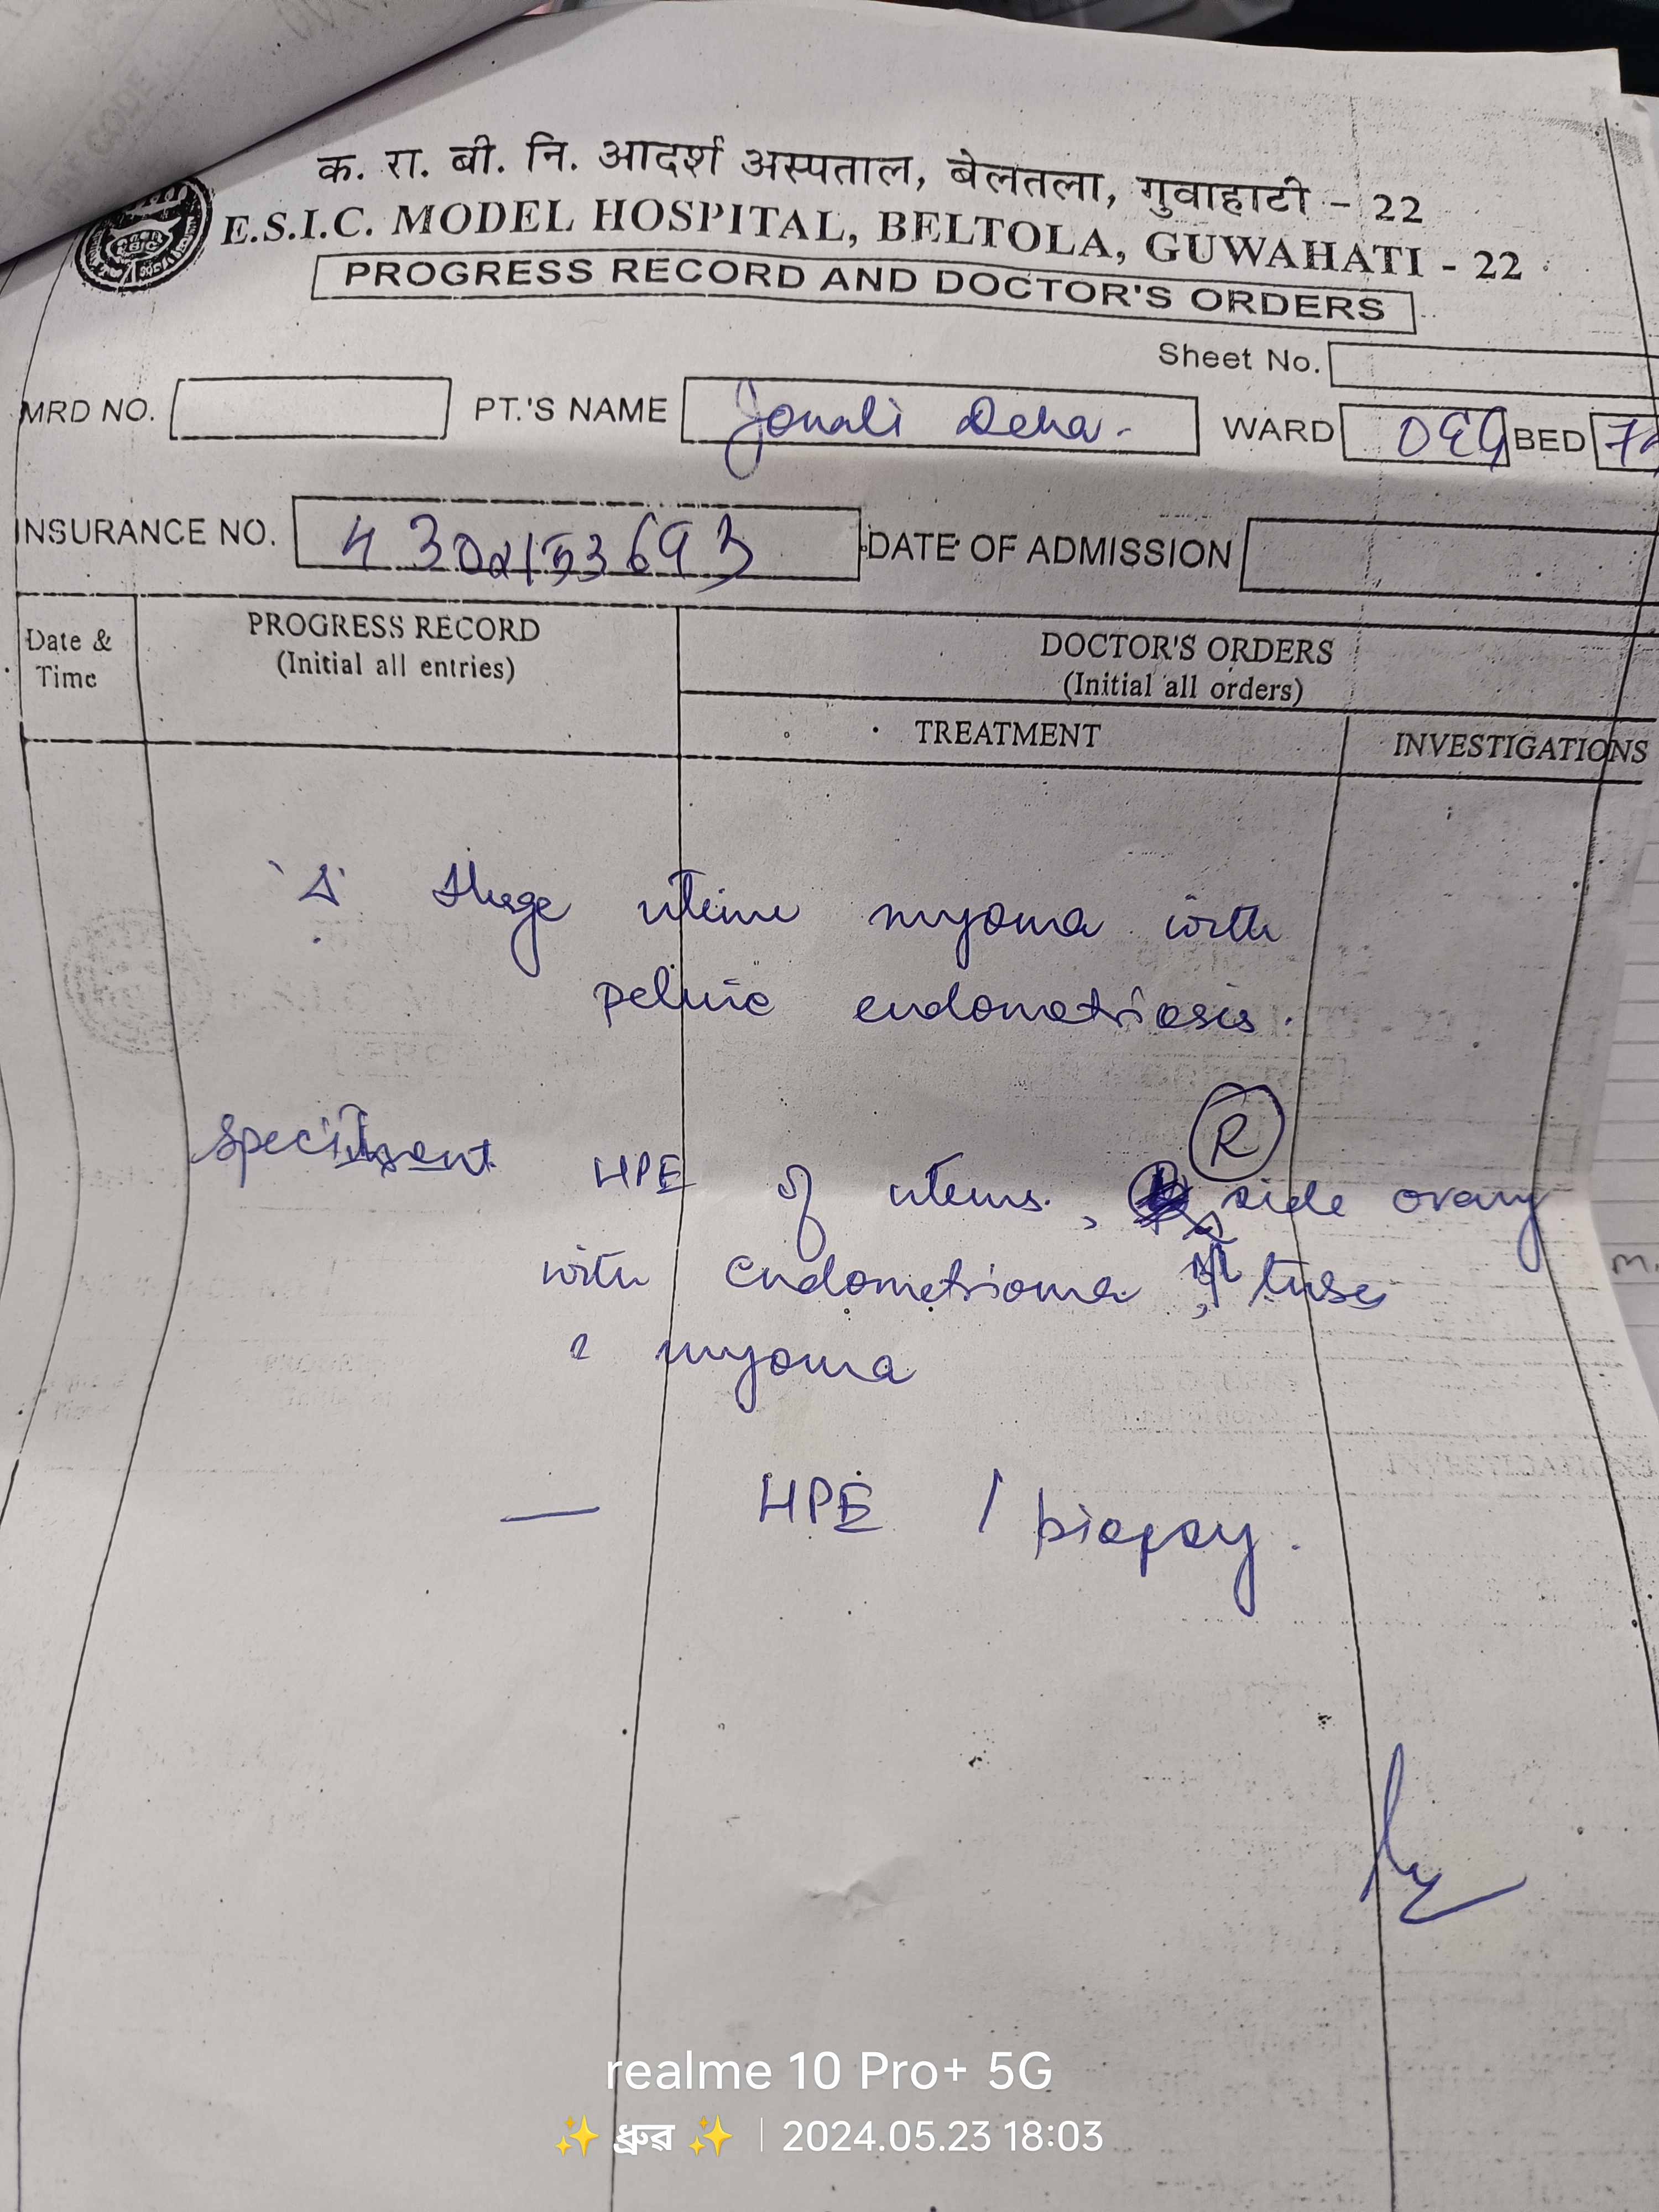 क. रा. बी. नि. आदर्श अस्पताल, बेलतला, गुवाहाटी - 22
E.S.I.C. MODEL HOSPITAL, BELTOLA, GUWAHATI - 22
PROGRESS RECORD AND DOCTOR'S ORDERS
Sheet No.
MRD NO. PT.'S NAME Jonali Deka. WARD BED
INSURANCE NO. 4302153693 DATE OF ADMISSION
Date & Time PROGRESS RECORD (Initial all entries) DOCTOR'S ORDERS (Initial all orders)
TREATMENT INVESTIGATIONS
uterine myoma with
pelvic endometriosis.
HPE of uterus, R side ovary
with endometrioma, tube
myoma
— HPE / biopsy.
realme 10 Pro+ 5G
✨ ধ্ৰুৱ ✨ | 2024.05.23 18:03